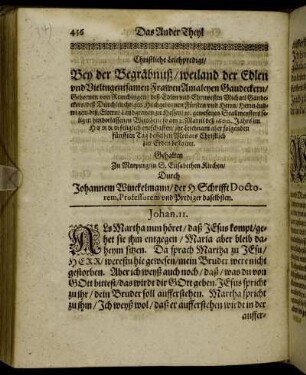 456 Das Ander Theyl
Christliche Leichpredigt/
Bey der Begräbnuß / weiland der Edlen
und Vieltugentsamen Frawen Amaleyen Gaudeckern/
Gebornen von
deß Durchleuchtigen Hochgebornen Fürsten und Herrn/ Herrn Lud-
wigen deß
den 2. Martii deß 1609. Jahrs im
HERRN seliglich entschlaffen/ ihr Leichnam aber folgenden
fünfften Tag desselben Monats Christlich
zur Erden bestattet.
Gehalten
Zu Marpurg in S. Elisabethen Kirchen/
Durch
Johannem Winckelmann/ der H. Schrifft Docto-
rem, Professorem und Prediger daselbsten.
Johan. 11.
ALs Martha nun höret/ daß JEsus kompt/ ge-
het sie ihm entgegen/ Maria aber bleib da-
heym sitzen. Da sprach Martha zu JEsu/
HERR/ werestu hie gewesen/ mein Bruder were nicht
gestorben. Aber ich weyß auch noch/ daß/ was du von
GOtt bittest/ das wirdt dir GOtt geben. JEsus spricht
zu ihr/ dein Bruder soll aufferstehen. Martha spricht
zu ihm/ Ich weyß wol/ daß er aufferstehen wirdt in der
auffer-